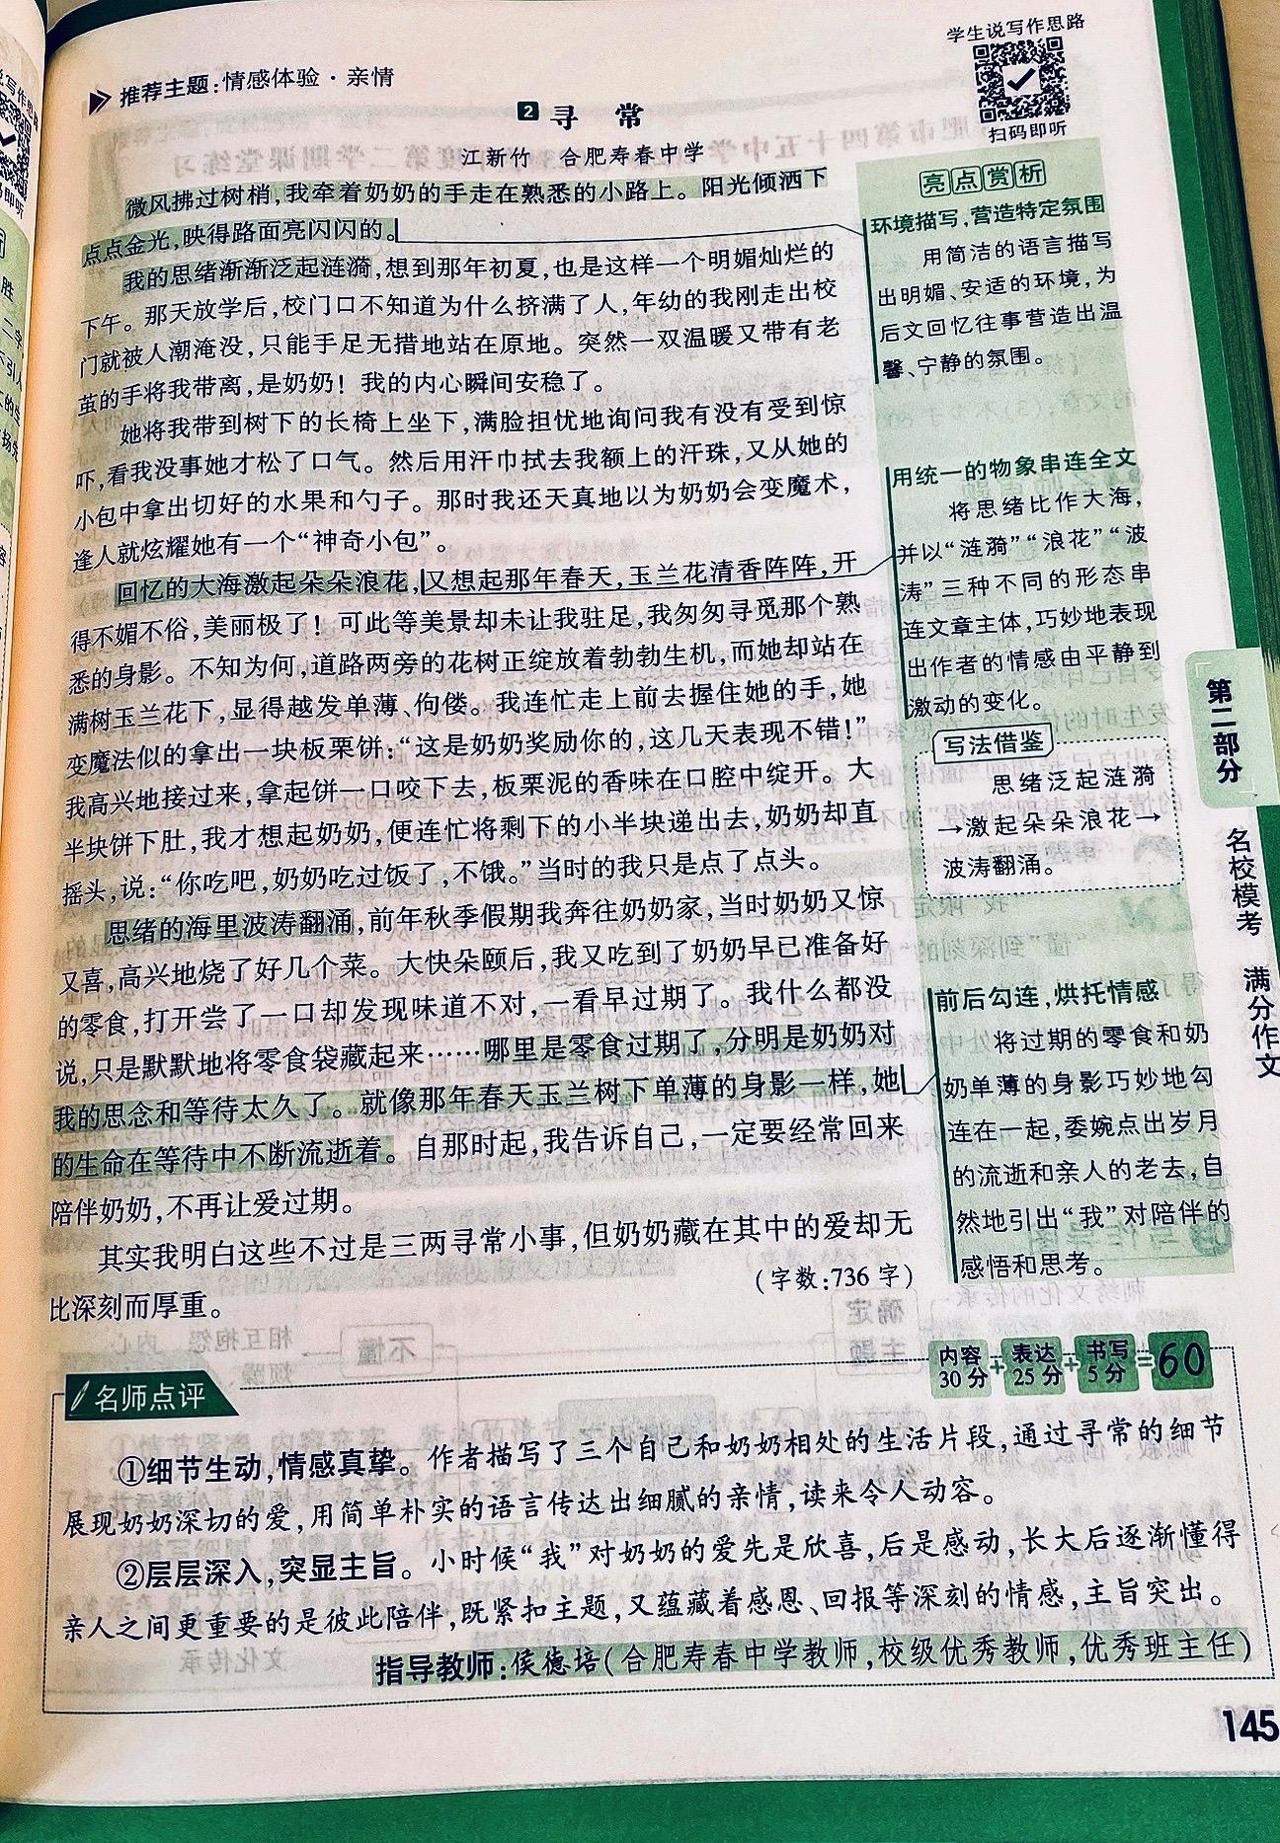 学生说写作思路
扫码即听
推荐主题:情感体验·亲情
2 寻 常
江新竹 合肥寿春中学
微风拂过树梢,我牵着奶奶的手走在熟悉的小路上。阳光倾洒下
点点金光,映得路面亮闪闪的。
我的思绪渐渐泛起涟漪,想到那年初夏,也是这样一个明媚灿烂的
下午。那天放学后,校门口不知道为什么挤满了人,年幼的我刚走出校
门就被人潮淹没,只能手足无措地站在原地。突然一双温暖又带有老
茧的手将我带离,是奶奶!我的内心瞬间安稳了。
她将我带到树下的长椅上坐下,满脸担忧地询问我有没有受到惊
吓,看我没事她才松了口气。然后用汗巾拭去我额上的汗珠,又从她的
小包中拿出切好的水果和勺子。那时我还天真地以为奶奶会变魔术,
逢人就炫耀她有一个“神奇小包”。
回忆的大海激起朵朵浪花,又想起那年春天,玉兰花清香阵阵,开
得不媚不俗,美丽极了!可此等美景却未让我驻足,我匆匆寻觅那个熟
悉的身影。不知为何,道路两旁的花树正绽放着勃勃生机,而她却站在
满树玉兰花下,显得越发单薄、佝偻。我连忙走上前去握住她的手,她
变魔法似的拿出一块板栗饼:“这是奶奶奖励你的,这几天表现不错!”
我高兴地接过来,拿起饼一口咬下去,板栗泥的香味在口腔中绽开。大
半块饼下肚,我才想起奶奶,便连忙将剩下的小半块递出去,奶奶却直
摇头,说:“你吃吧,奶奶吃过饭了,不饿。”当时的我只是点了点头。
思绪的海里波涛翻涌,前年秋季假期我奔往奶奶家,当时奶奶又惊
又喜,高兴地烧了好几个菜。大快朵颐后,我又吃到了奶奶早已准备好
的零食,打开尝了一口却发现味道不对,一看早过期了。我什么都没
说,只是默默地将零食袋藏起来……哪里是零食过期了,分明是奶奶对
我的思念和等待太久了。就像那年春天玉兰树下单薄的身影一样,她
的生命在等待中不断流逝着。自那时起,我告诉自己,一定要经常回来
陪伴奶奶,不再让爱过期。
其实我明白这些不过是三两寻常小事,但奶奶藏在其中的爱却无
比深刻而厚重。
(字数:736字)
亮点赏析
环境描写,营造特定氛围
用简洁的语言描写
出明媚、安适的环境,为
后文回忆往事营造出温
馨、宁静的氛围。
用统一的物象串连全文
将思绪比作大海,
并以“涟漪”“浪花”“波
涛”三种不同的形态串
连文章主体,巧妙地表现
出作者的情感由平静到
激动的变化。
写法借鉴
思绪泛起涟漪
→激起朵朵浪花→
波涛翻涌。
前后勾连,烘托情感
将过期的零食和奶
奶单薄的身影巧妙地勾
连在一起,委婉点出岁月
的流逝和亲人的老去,自
然地引出“我”对陪伴的
感悟和思考。
内容30分+表达25分+书写5分=60
名师点评
①细节生动,情感真挚。作者描写了三个自己和奶奶相处的生活片段,通过寻常的细节
展现奶奶深切的爱,用简单朴实的语言传达出细腻的亲情,读来令人动容。
②层层深入,突显主旨。小时候“我”对奶奶的爱先是欣喜,后是感动,长大后逐渐懂得
亲人之间更重要的是彼此陪伴,既紧扣主题,又蕴藏着感恩、回报等深刻的情感,主旨突出。
指导教师:侯德培(合肥寿春中学教师,校级优秀教师,优秀班主任)
第二部分 名校模考 满分作文
145